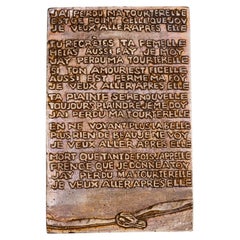 J'AI PERDU MA TOURTERELLE
EST CE POINT CELLE QUE J'OY
JE VEUX ALLER APRES ELLE
TU REGRETES TA FEMELLE
HELAS AUSSI FAY JE MOY
J'AY PERDU MA TOURTERELLE
SI TON AMOUR EST FIDELLE
AUSSI EST FERME MA FOY
JE VEUX ALLER APRES ELLE
TA PLAINTE SE RENOUVELLE
TOUJOURS PLAINDRE JE ME DOY
J'AY PERDU MA TOURTERELLE
EN NE VOYANT PLUS LA BELLE
PLUS RIEN DE BEAU JE NE VOY
JE VEUX ALLER APRES ELLE
MORT QUE TANT DE FOIS J'APPELLE
PRENDS CE QUE JE DONNE A TOY
J'AY PERDU MA TOURTERELLE
JE VEUX ALLER APRES ELLE